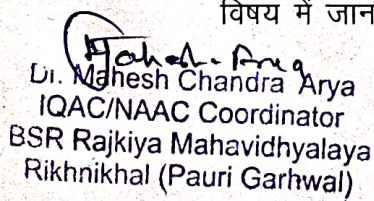 विषय में जान
Dr. Mahesh Chandra Arya
IQAC/NAAC Coordinator
BSR Rajkiya Mahavidhyalaya
Rikhnikhal (Pauri Garhwal)